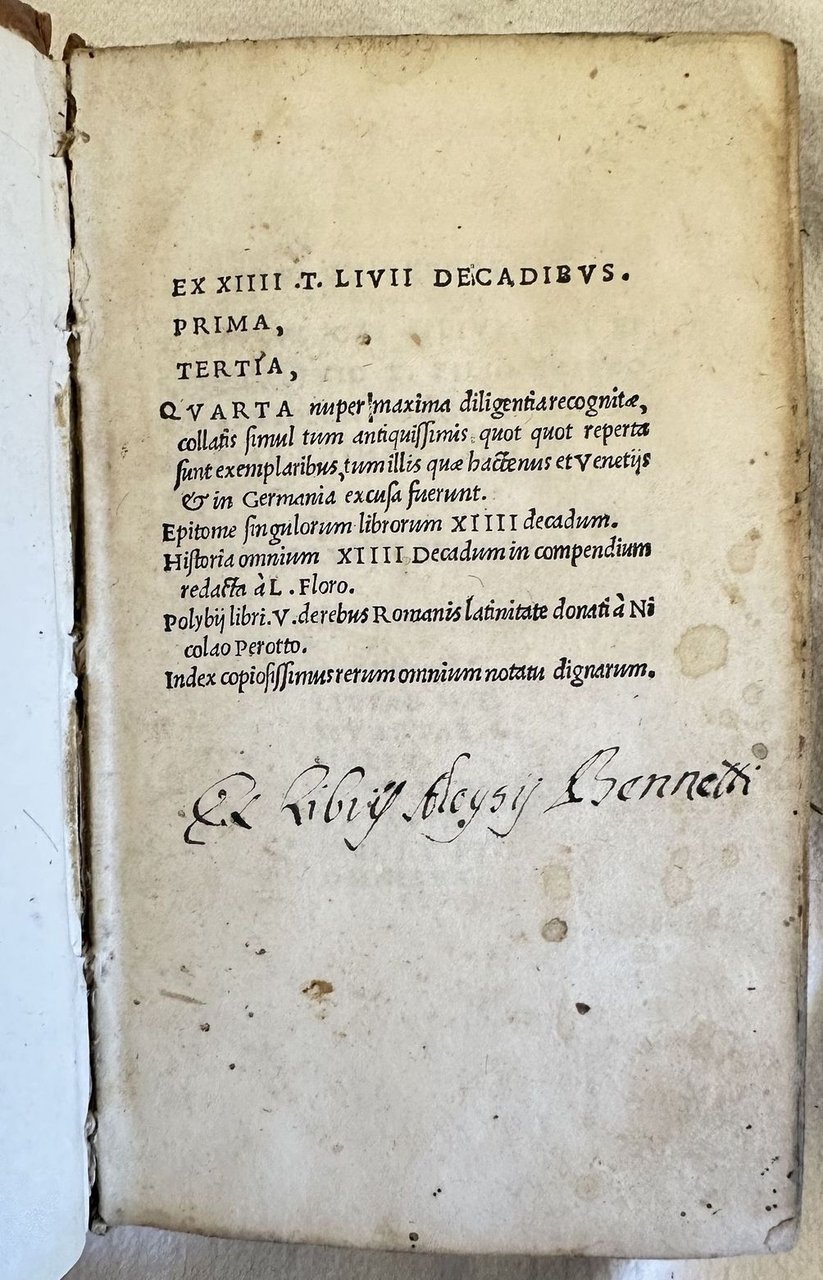 EX XIIII .T. LIVII DECADIBVS.
PRIMA,
TERTIA,
QVARTA nuper maxima diligentia recognitæ,
collatis simul tum antiquissimis quot quot reperta
sunt exemplaribus, tum illis quæ hactenus et Venetijs
& in Germania excusa fuerunt.
Epitome singulorum librorum XIIII decadum.
Historia omnium XIIII Decadum in compendium
redacta à L. Floro.
Polybij libri.V. de rebus Romanis latinitate donati à Ni
colao Perotto.
Index copiosissimus rerum omnium notatu dignarum.
Ex Librijs Aloysij Bennetti